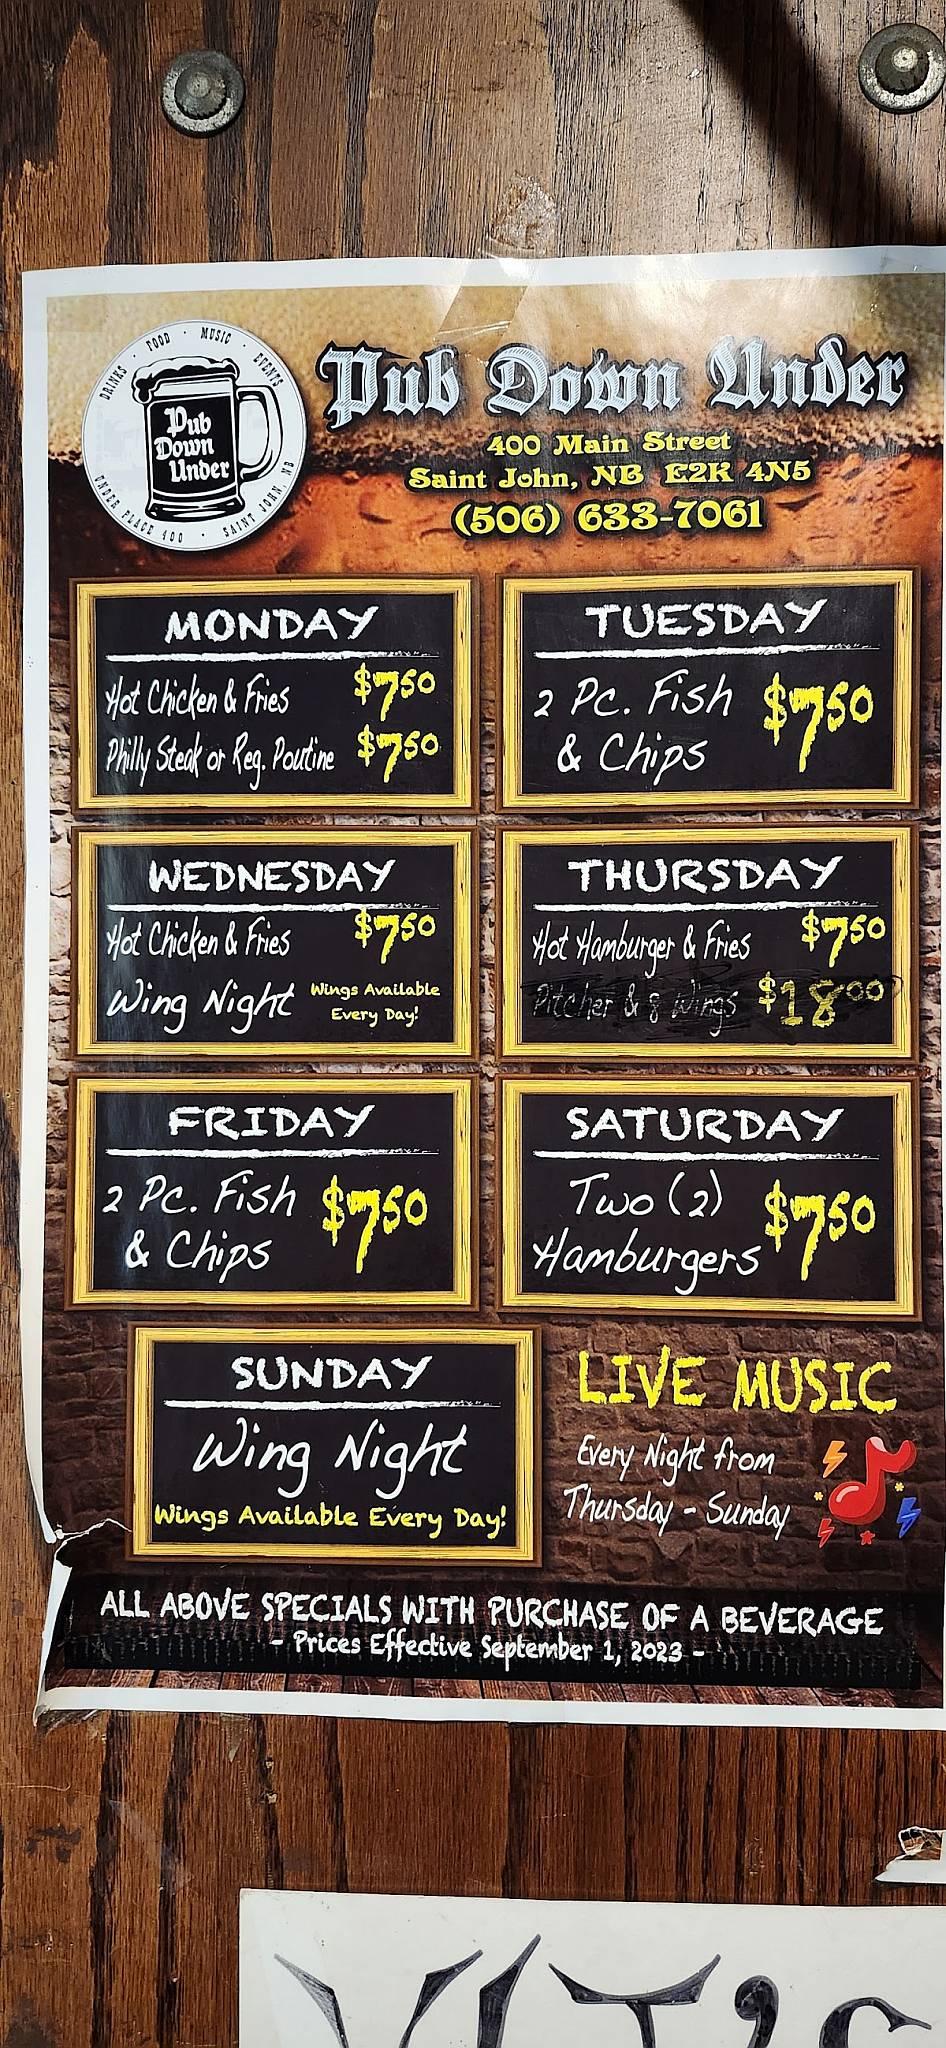 DRINKS · FOOD · MUSIC · EVENTS
Pub
Down
Under
UNDER PLACE 400 · SAINT JOHN, NB
Pub Down Under
400 Main Street
Saint John, NB E2K 4N5
(506) 633-7061
MONDAY
Hot Chicken & Fries $750
Philly Steak or Reg. Poutine $750
TUESDAY
2 Pc. Fish
& Chips $750
WEDNESDAY
Hot Chicken & Fries $750
Wing Night Wings Available
Every Day!
THURSDAY
Hot Hamburger & Fries $750
Pitcher & 8 Wings $1800
FRIDAY
2 Pc. Fish
& Chips $750
SATURDAY
Two (2)
Hamburgers $750
SUNDAY
Wing Night
Wings Available Every Day!
LIVE MUSIC
Every Night from
Thursday - Sunday
ALL ABOVE SPECIALS WITH PURCHASE OF A BEVERAGE
- Prices Effective September 1, 2023 -